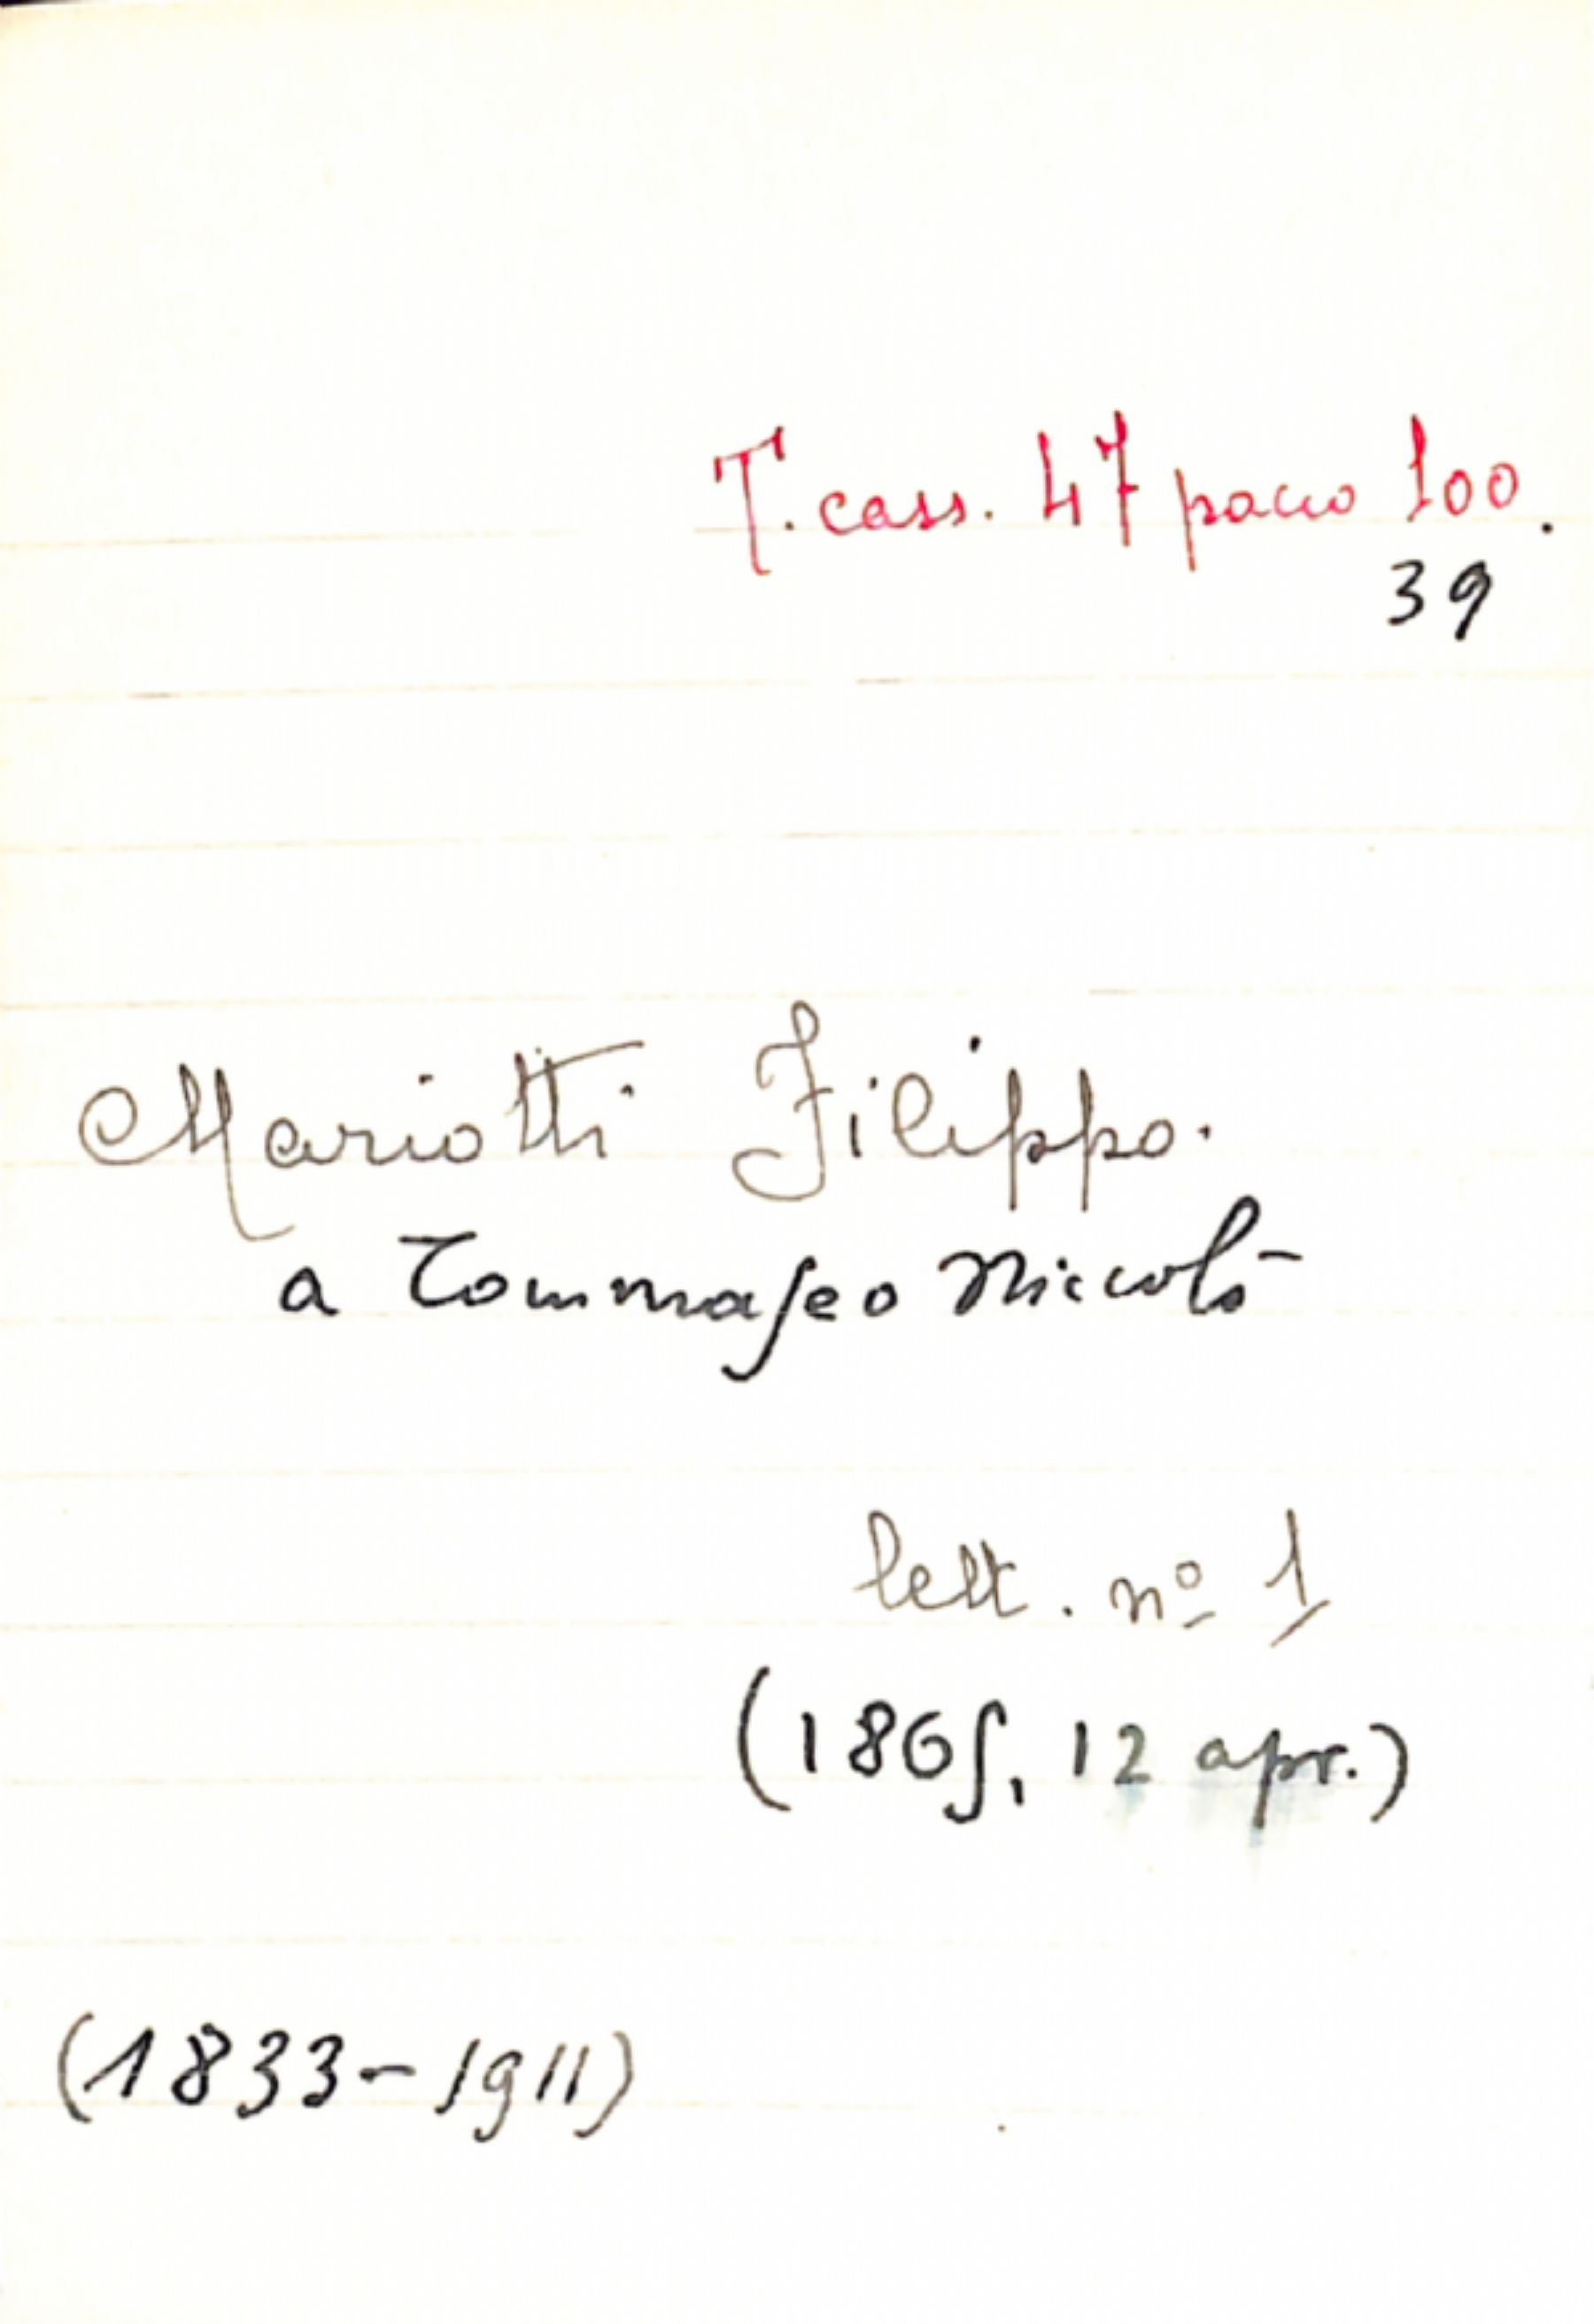 T. cass. 47 pacco 100.
39
Mariotti Filippo.
a Tommaseo Niccolò
lett. nº 1
(1865, 12 apr.)
(1833-1911)